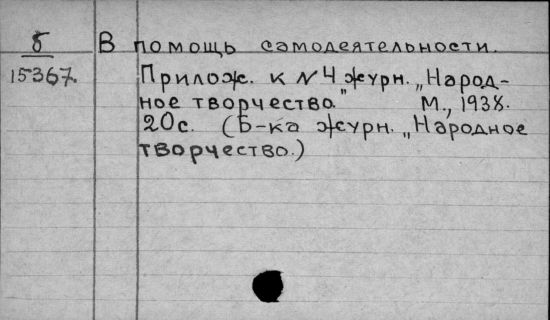 Б В помощь самодеятельности.
15367. Прилож. к №4 журн. „Народ-
ное творчество." М., 1938.
20с. (Б-ка журн. „Народное
творчество.)